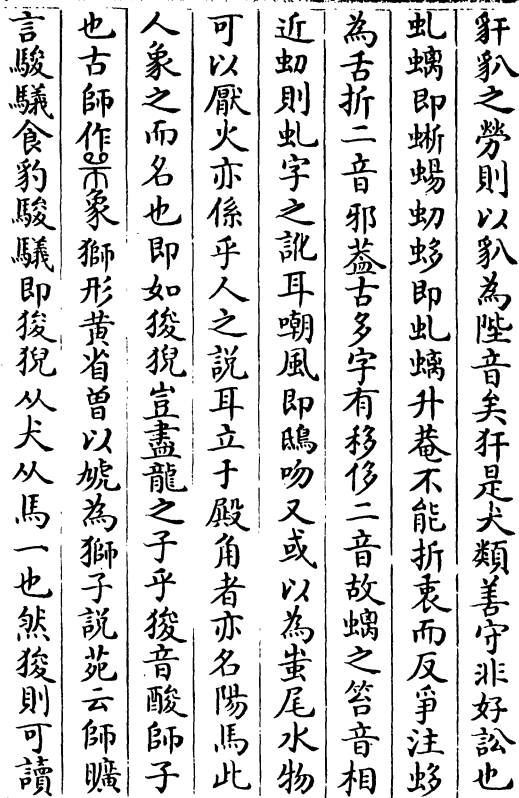 豻䝘之勞則以䝘為陛音矣犴是犬類善守非好訟也
虬螭即蜥蜴䖡𧊅即虬螭升菴不能折衷而反爭注𧊅
為舌折二音邪葢古多字有移侈二音故螭之笞音相
近䖡則虬字之訛耳嘲風即鴟吻又或以為蚩尾水物
可以厭火亦係乎人之說耳立于殿角者亦名陽馬此
人象之而名也即如狻猊豈盡龍之子乎狻音酸師子
也古師作象獅形黄省曽以虓為獅子說苑云師曠
言駿䮼食豹駿䮼即狻猊从犬从馬一也然狻則可讀